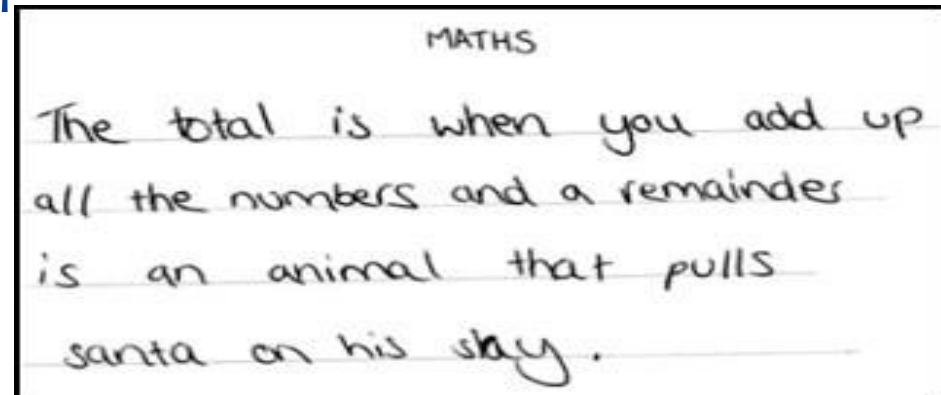 MATHS
The total is when you add up
all the numbers and a remainder
is an animal that pulls
santa on his slay.